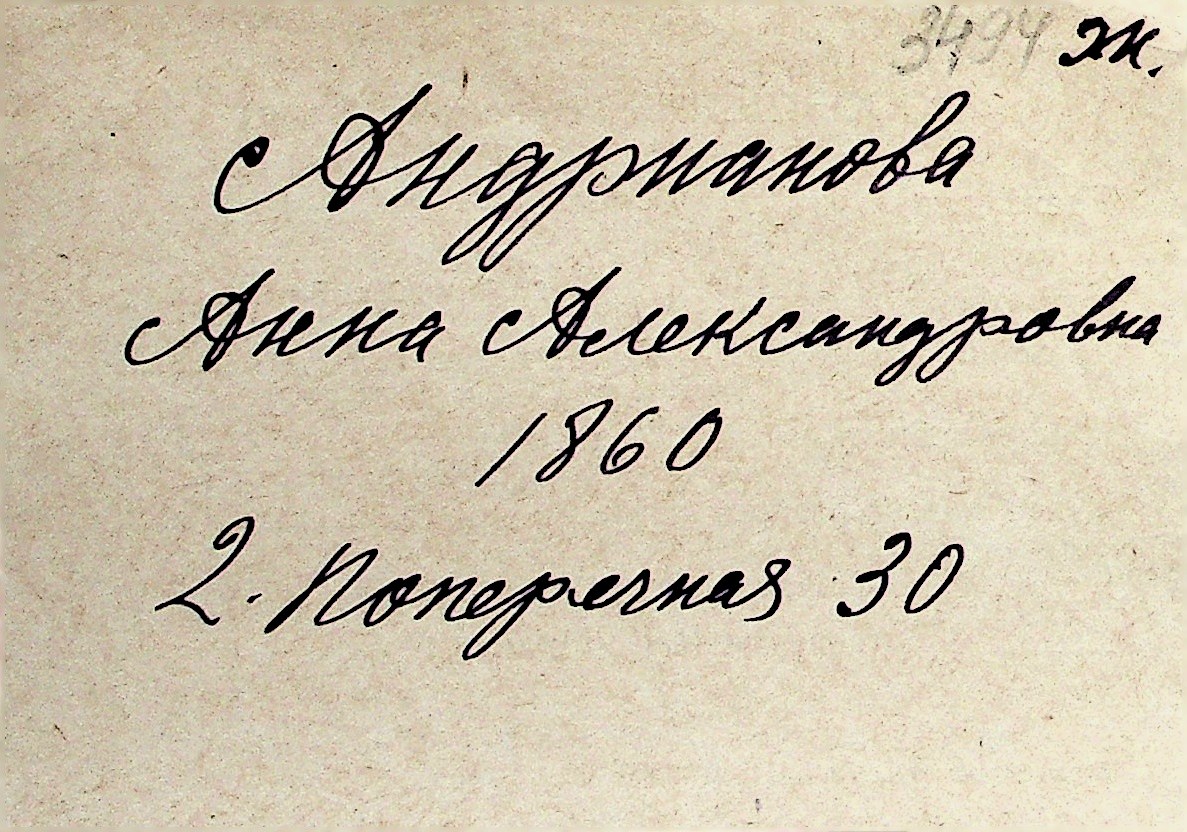 3494 ж.
Андрианова
Анна Александровна
1860
2. Поперечная 30